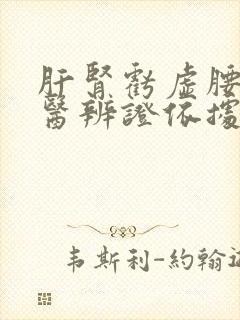 肝腎虧虛腰
醫辨證依據
韋斯利-約翰遜